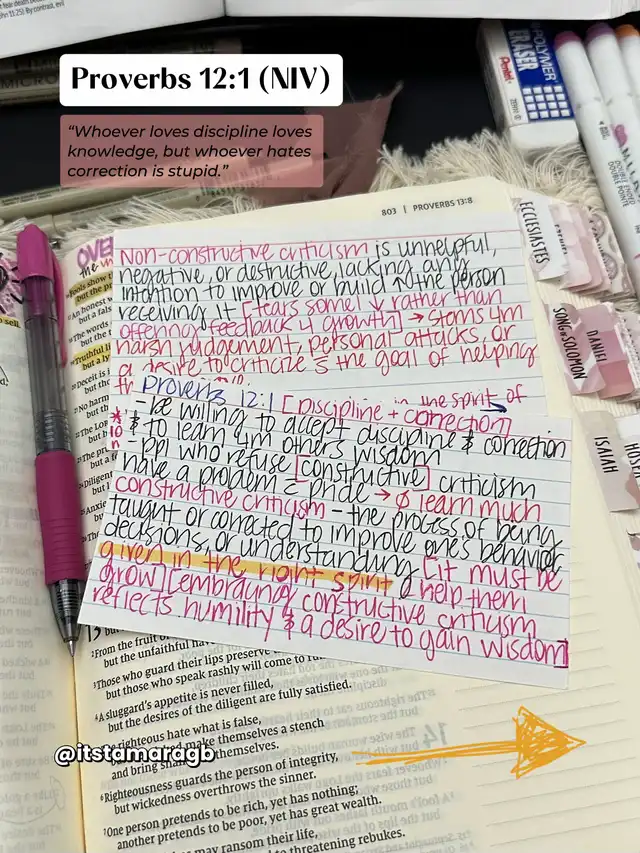 n 11:25) By contrast, evil
Proverbs 12:1 (NIV)
“Whoever loves discipline loves
knowledge, but whoever hates
correction is stupid.”
POLYMER
ERASER
Pentel
803 | PROVERBS 13:8
ECCLESIASTES
SONG of SOLOMON
DANIEL
ISAIAH
OVER
the
Non-constructive criticism is unhelpful,
negative, or destructive, lacking any
intention to improve or build ↑ the person
receiving it [tears some1 ↓ rather than
offering feedback 4 growth] → stems 4m
harsh judgement, personal attacks, or
a desire to criticize s̄ the goal of helping
in the spirit of
Proverbs 12:1 [Discipline + correction]
-be willing to accept discipline & correction
& to learn 4m others wisdom
-ppl who refuse [constructive] criticism
have a problem c̄ pride → ∅ learn much
constructive criticism - the process of being
taught or corrected to improve one's behavior,
decisions, or understanding [it must be
given in the right spirit & help them
grow] [embracing constructive criticism
reflects humility & a desire to gain wisdom]
13
²From the fruit of
but the unfaithful
³Those who guard their lips preserve
but those who speak rashly will come to
⁴A sluggard's appetite is never filled,
but the desires of the diligent are fully satisfied.
righteous hate what is false,
make themselves a stench
and bring shame themselves.
@itstamaragb
⁶Righteousness guards the person of integrity,
but wickedness overthrows the sinner.
⁷One person pretends to be rich, yet has nothing;
another pretends to be poor, yet has great wealth.
may ransom their life,
to threatening rebukes.